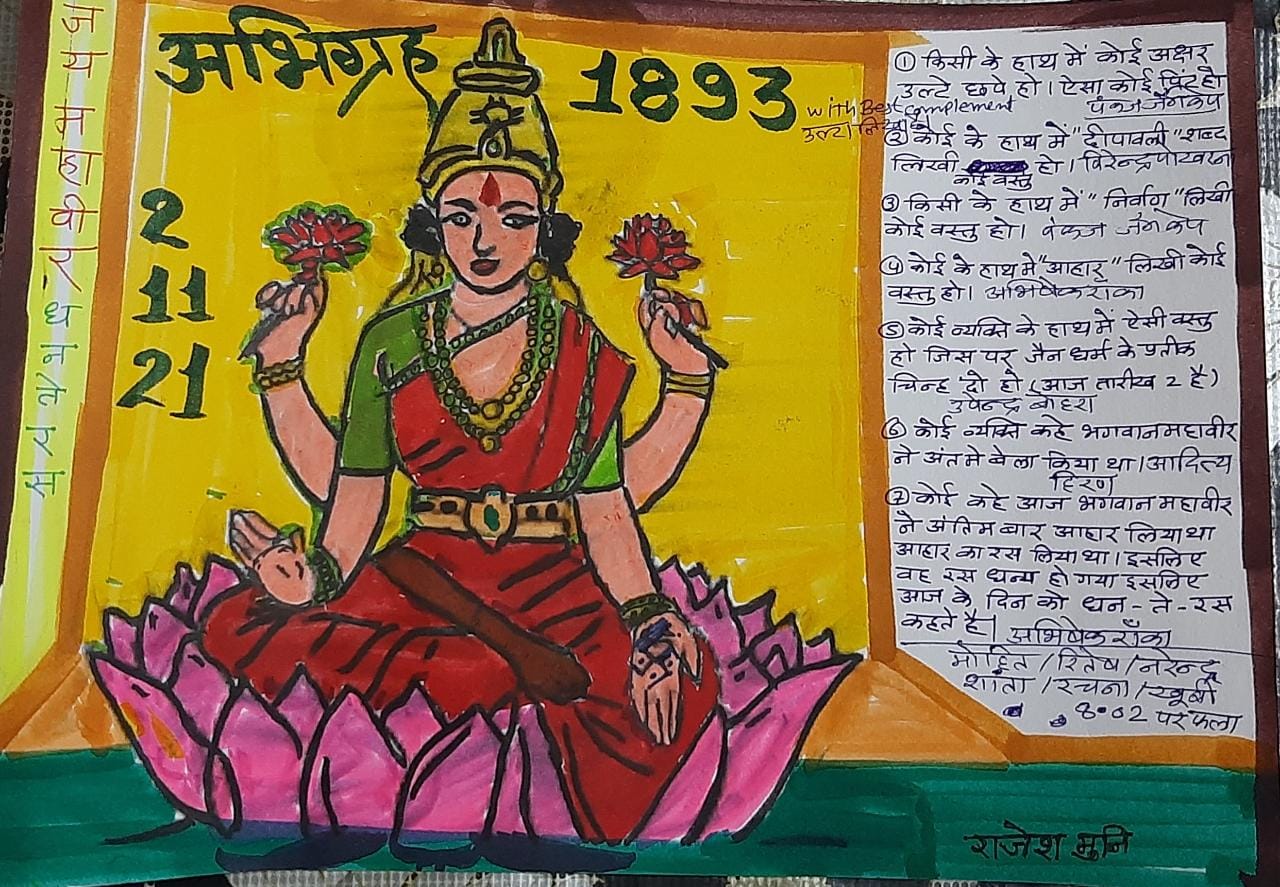 अभिग्रह 1893
2
11
21
with Best complement
उल्टा लिखा
① किसी के हाथ में कोई अक्षर
उल्टे छपे हो। ऐसा कोई प्रिंट हो
पंकज जैंगकप
② कोई के हाथ में "दीपावली" शब्द
लिखी हो। विरेन्द्र पोखरना
कोई वस्तु
③ किसी के हाथ में "निर्वाण" लिखी
कोई वस्तु हो। पंकज जैंगकप
④ कोई के हाथ में "आहार" लिखी कोई
वस्तु हो। अभिषेक राँका
⑤ कोई व्यक्ति के हाथ में ऐसी वस्तु
हो जिस पर जैन धर्म के प्रतीक
चिन्ह दो हो (आज तारीख 2 है)
उपेन्द्र बोहरा
⑥ कोई व्यक्ति कहे भगवान महावीर
ने अंत मे बेला किया था। आदित्य
हिरण
⑦ कोई कहे आज भगवान महावीर
ने अंतिम बार आहार लिया था
आहार का रस लिया था। इसलिए
वह रस धन्य हो गया इसलिए
आज के दिन को धन - ते - रस
कहते है। अभिषेक राँका
मोहित / रितेष / नरेन्द्र
शांता / रचना / खूबी
8.02 पर फला
राजेश मुनि